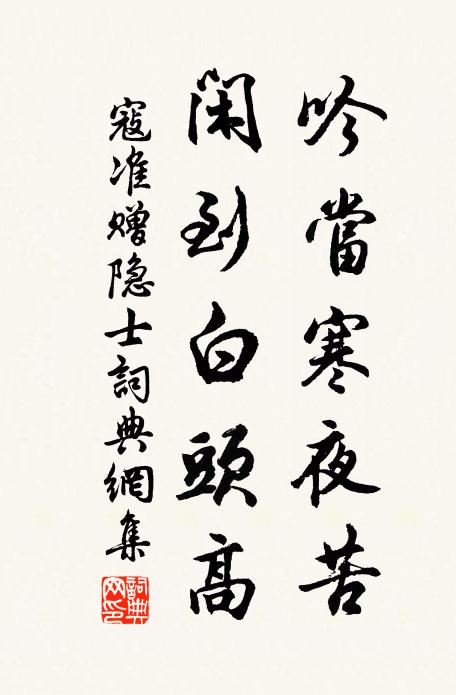 吟當寒夜苦
閑到白頭高
寇准贈隐士詞典網集
詞典网印